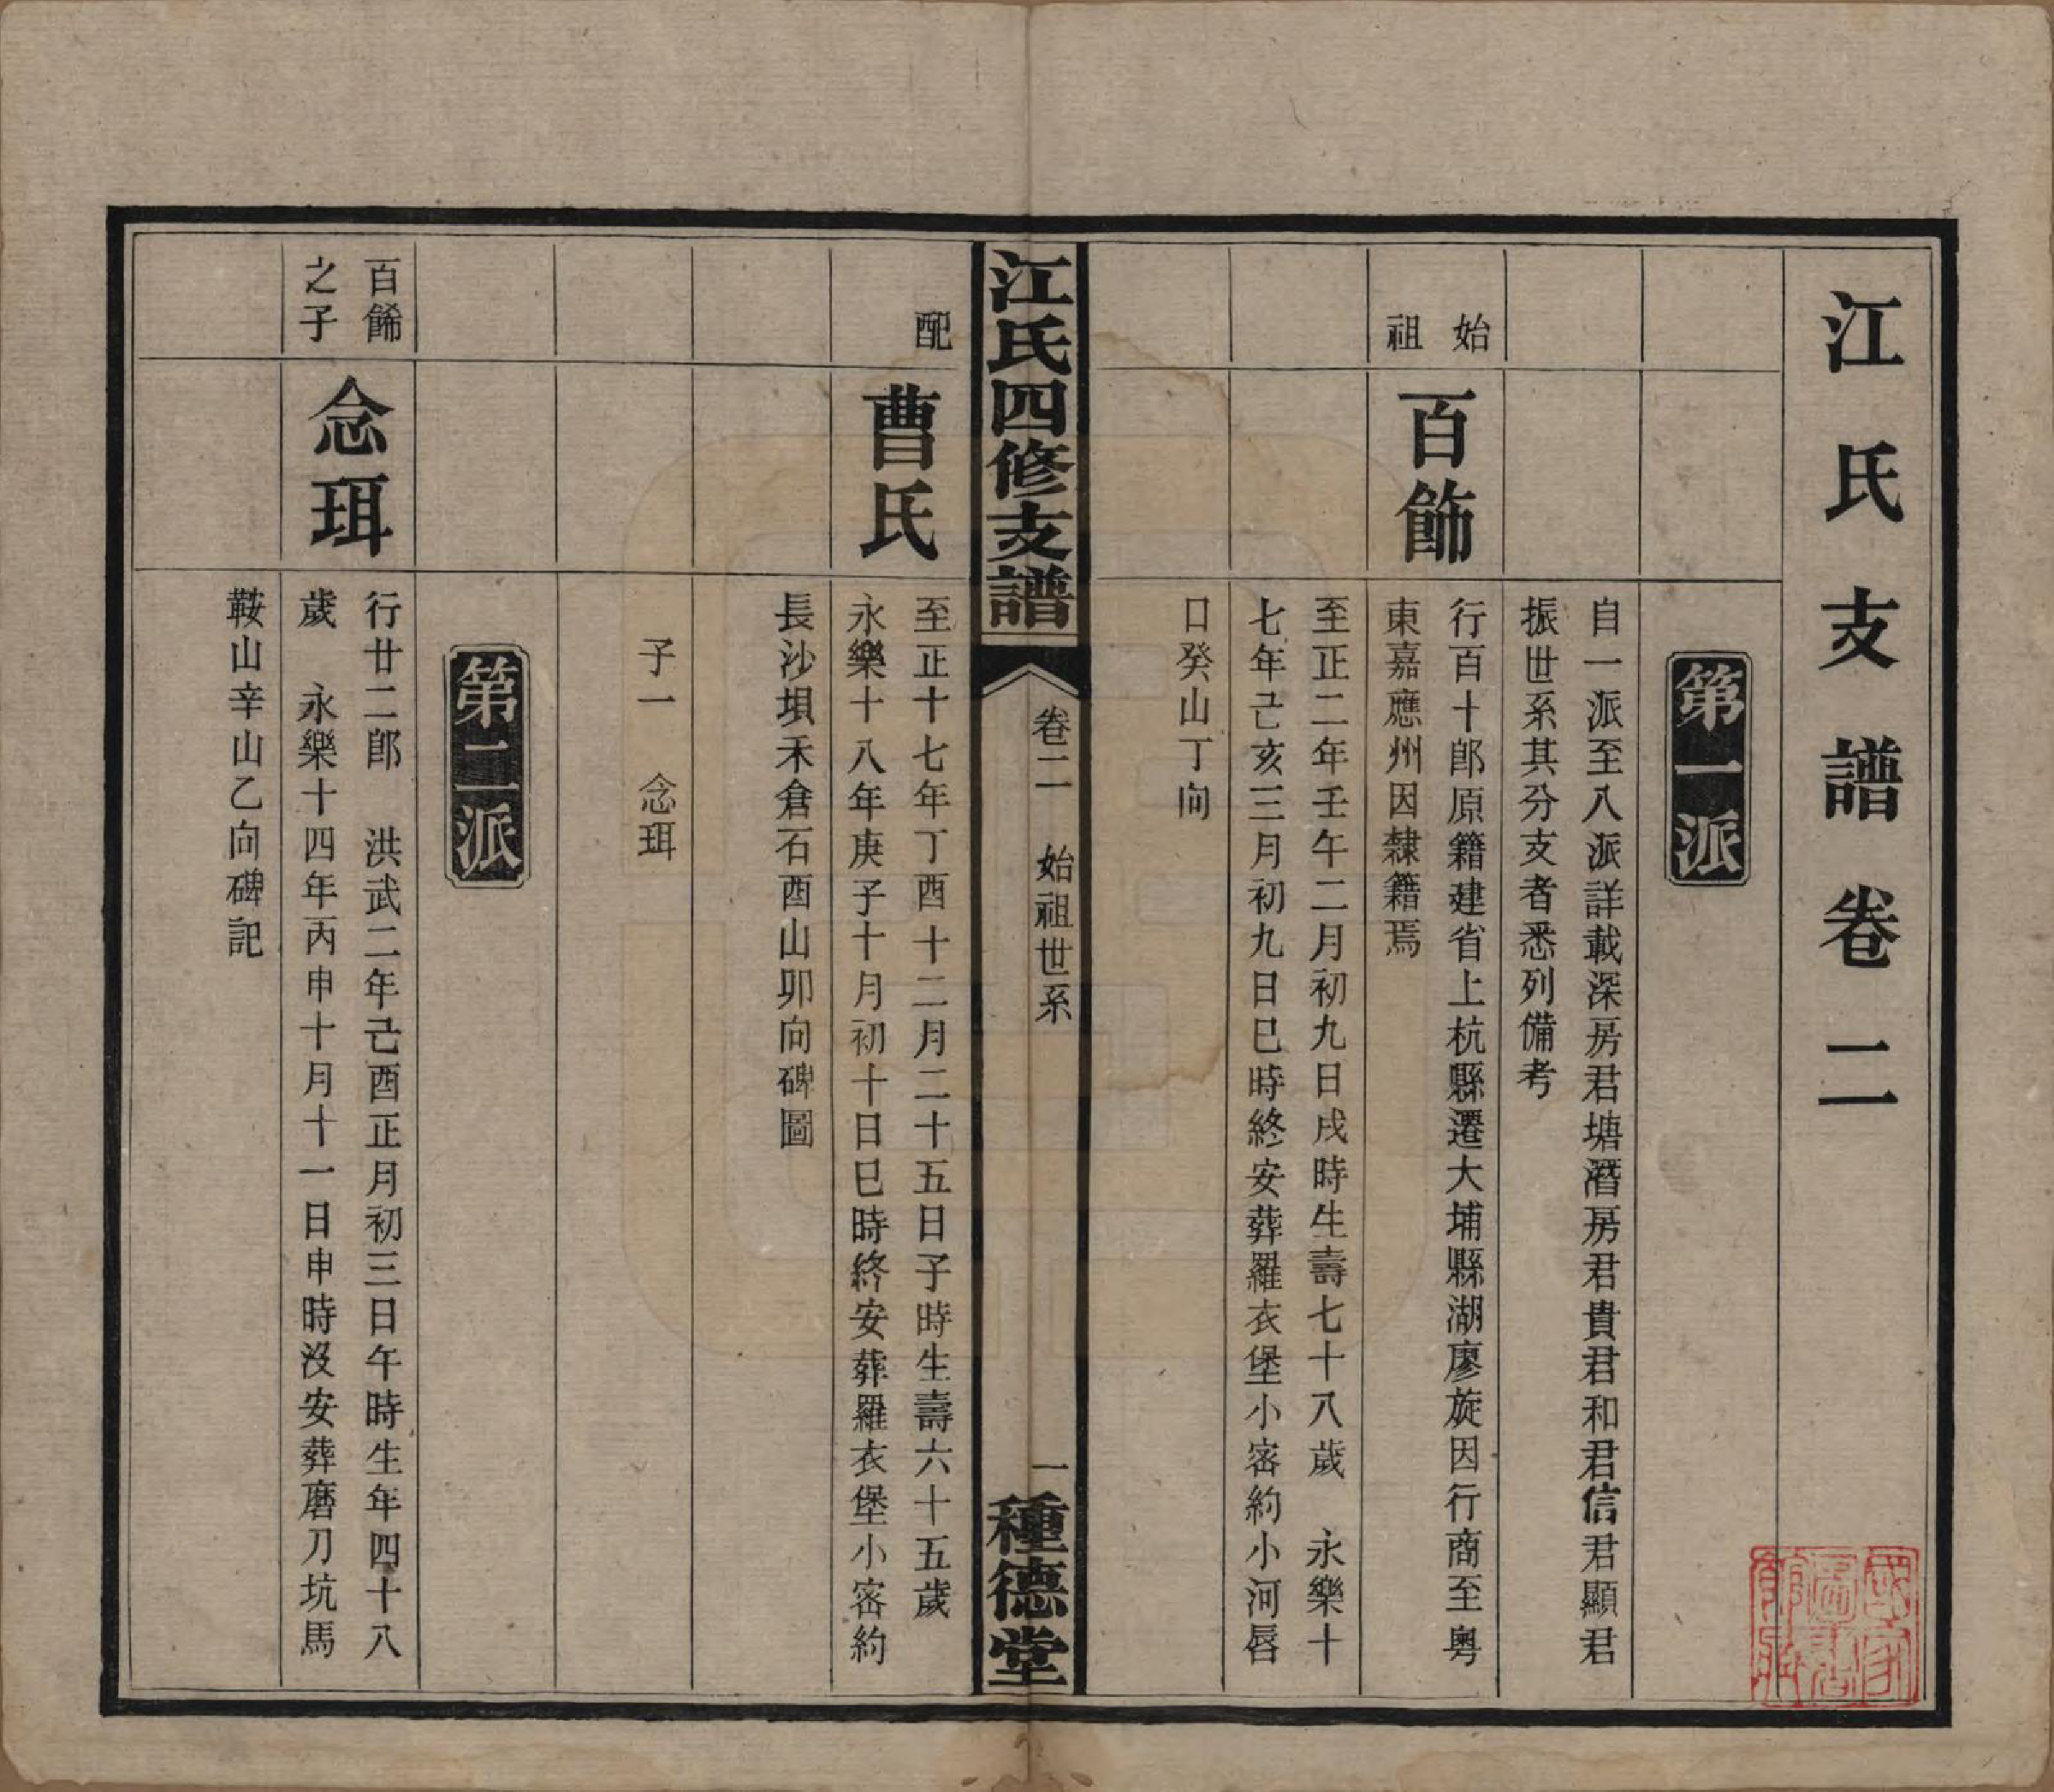 江氏支譜卷二
第一派
自一派至八派詳載深房君塘湣房君貴君和君信君顯君
振世系其分支者悉列備考
始祖
百飾
行百十郎原籍建省上杭縣遷大埔縣湖廖旋因行商至粵
東嘉應州因隸籍焉
至正二年壬午二月初九日戌時生壽七十八歲 永樂十
七年己亥三月初九日巳時終安葬羅衣堡小密約小河唇
口癸山丁向
江氏四修支譜
卷二 始祖世系
一
種德堂
配
曹氏
至正十七年丁酉十二月二十五日子時生壽六十五歲
永樂十八年庚子十月初十日巳時終安葬羅衣堡小密約
長沙垻禾倉石酉山卯向碑圖
子一 念珥
第二派
百餙
之子
念珥
行廿二郎 洪武二年己酉正月初三日午時生年四十八
歲 永樂十四年丙申十月十一日申時沒安葬磨刀坑馬
鞍山辛山乙向碑記